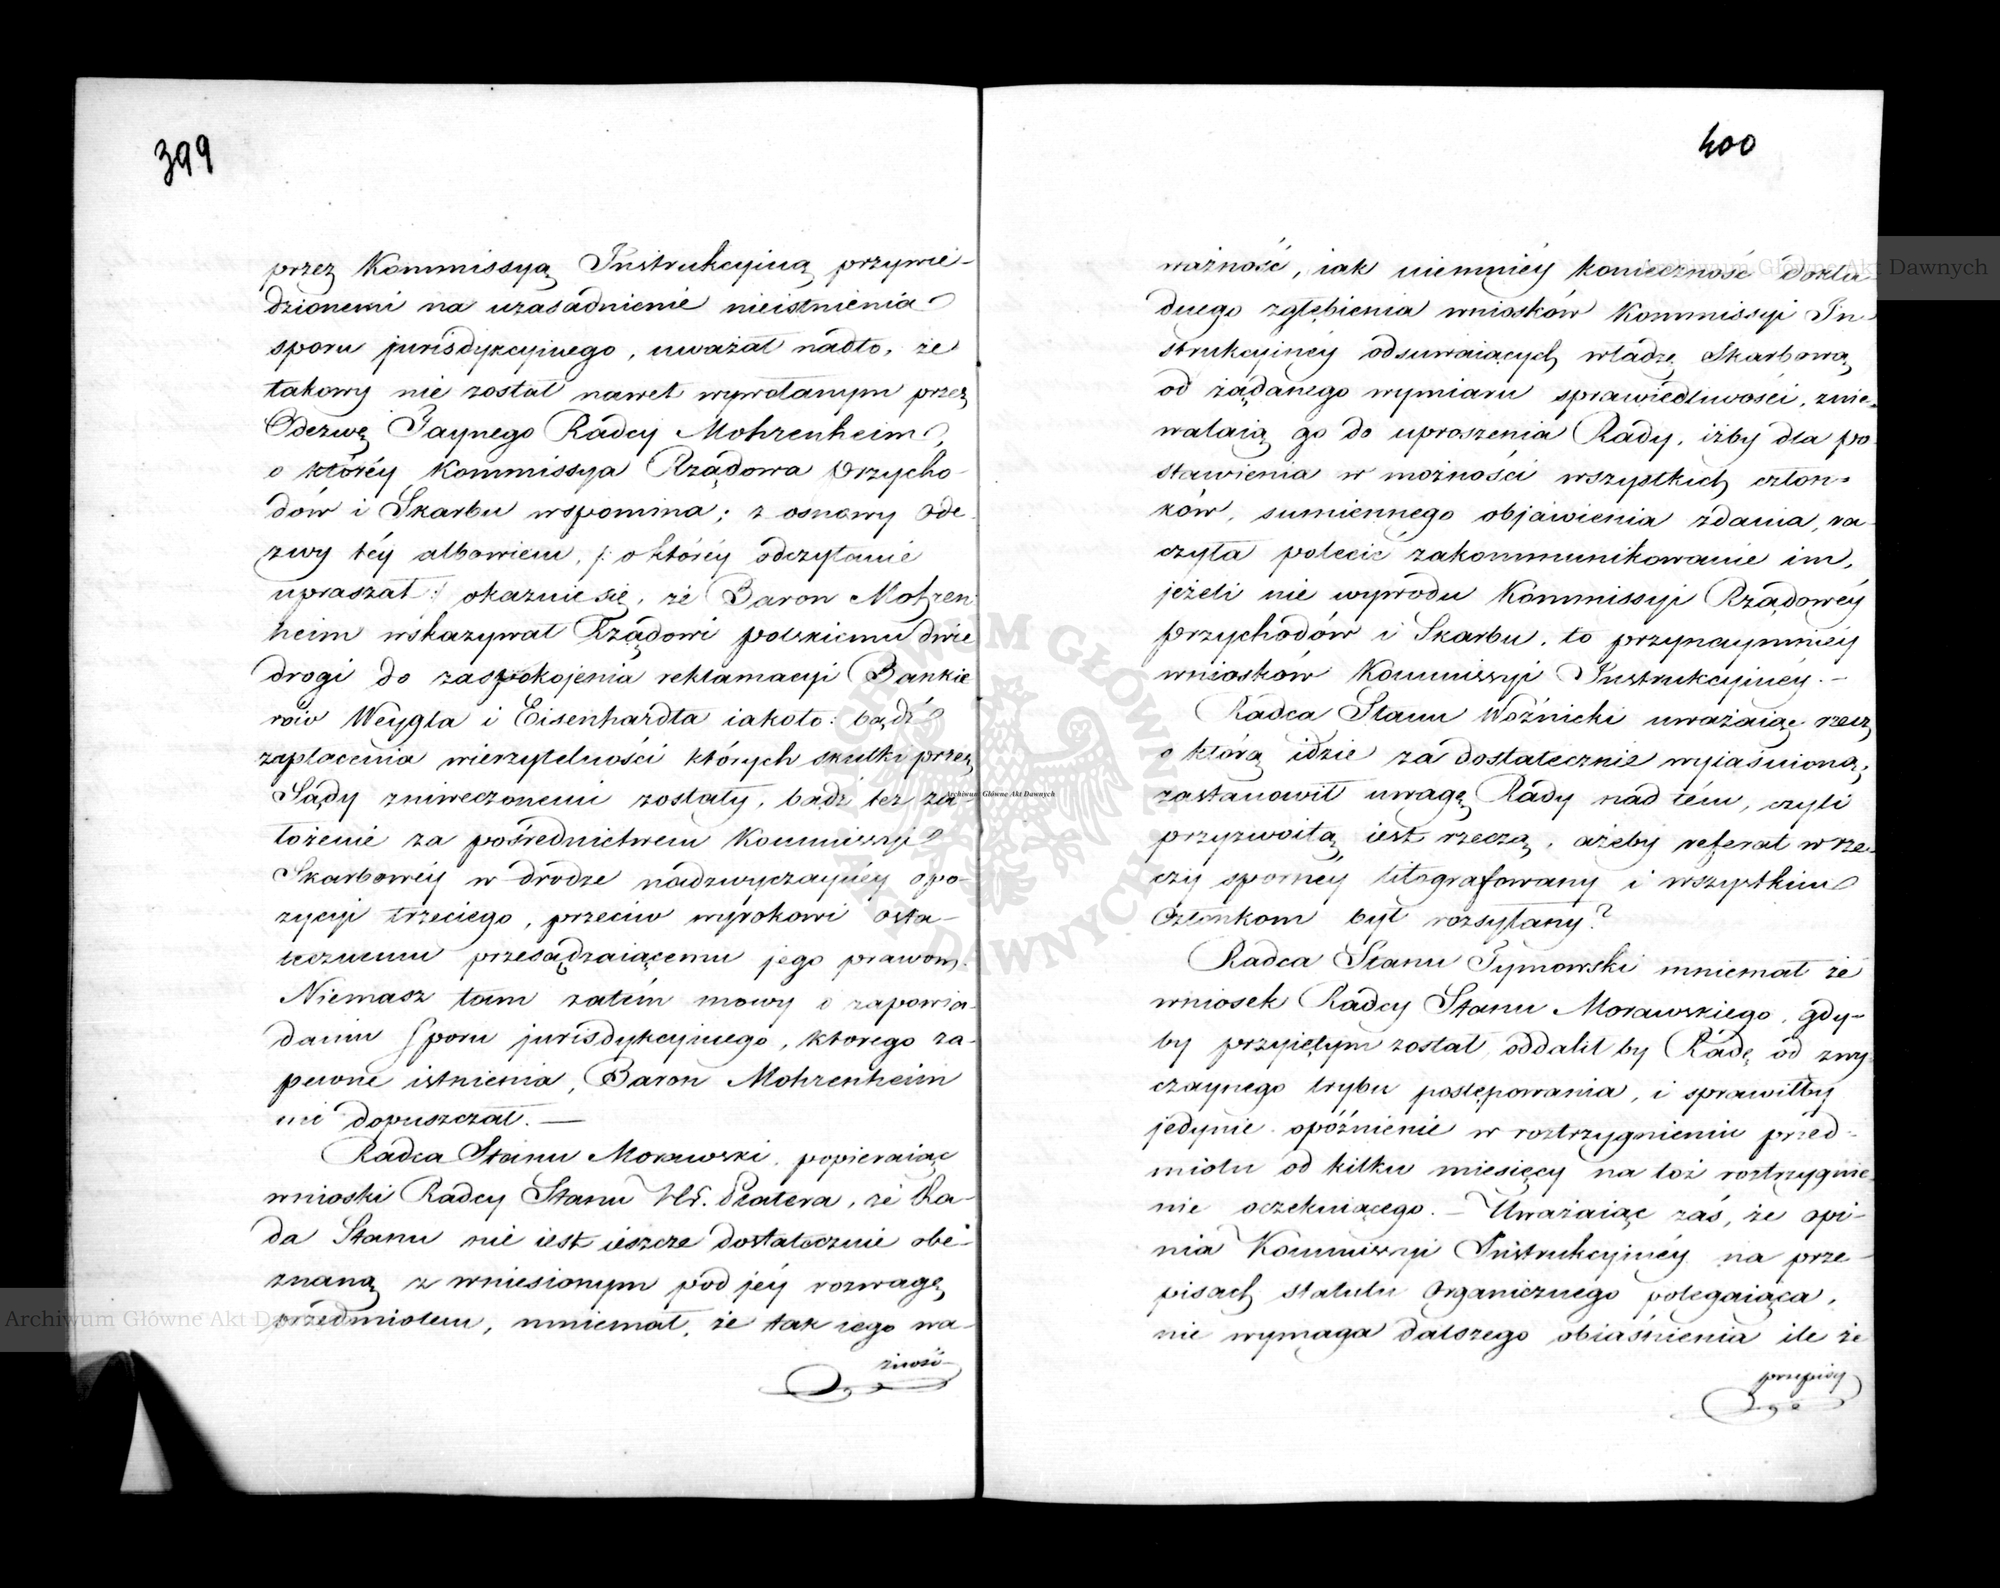 399
przez Kommissyą Instrukcyiną przywie-
dzionemi na uzasadnienie nieistnienia
sporu jurisdykcyinego, uważał nadto, że
takowy nie został nawet wywołanym przez
Odezwę Taynego Radcy Mohrenheim,
o któréy Kommissya Rządowa Przycho-
dów i Skarbu wspomina; z osnowy Ode-
zwy téy albowiem, /: o któréy odczytanie
upraszał :/ okazuie się, że Baron Mohren
heim wskazywał Rządowi polskiemu dwie
drogi do zaspokojenia reklamacyi Bankie
rów Weygla i Eisenhardta iakoto: bądź
zapłacenia wierzytelności których skutki przez
Sądy zniweczonemi zostały, bądź też za-
łożenie za pośrednictwem Kommissyi
Skarbowéy w drodze nadzwyczaynéy opo-
zycyi trzeciego, przeciw wyrokowi osta-
tecznemu przesądzaiącemu jego prawom.
Niemasz tam zatém mowy o zapowia-
daniu sporu jurisdykcyinego, którego za-
pewne istnienia, Baron Mohrenheim
nie dopuszczał. —
Radca Stanu Morawski, popieraiąc
wnioski Radcy Stanu Hr. Platera, że Ra-
da Stanu nie iest ieszcze dostatecznie obe-
znaną z wniesionym pod jéy rozwagę
przedmiotem, mniemał, że tak iego wa-
żność
400
ważność, iak niemniéy konieczność dokła
dnego zgłębienia wniosków Kommissyi In-
strukcyinéy odsuwaiących władzę Skarbową
od żądanego wymiaru sprawiedliwości, znie-
walaią go do uproszenia Rady, iżby dla po-
stawienia w możności wszystkich człon-
ków, sumiennego objawienia zdania, ra-
czyła polecić zakommunikowanie im,
jeżeli nie wywodu Kommissyi Rządowéy
Przychodów i Skarbu, to przynaymniéy
wniosków Kommissyi Instrukcyinéy. —
Radca Stanu Woźnicki uważaiąc rzecz
o którą idzie za dostatecznie wyiaśnioną,
zastanowił uwagę Rady nad tém, czyli
przyzwoitą iest rzeczą, ażeby referat w rze-
czy spornéy litografowany i wszystkim
Członkom był rozsyłany?
Radca Stanu Tymowski mniemał że
wniosek Radcy Stanu Morawskiego, gdy-
by przyiętym został, oddalił by Radę od zwy
czaynego trybu postępowania, i sprawiłby
jedynie opóźnienie w roztrzygnieniu przed-
miotu od kilku miesięcy na toż roztrzygnie
nie oczekuiącego. — Uważaiąc zaś, że opi-
nia Kommissyi Instrukcyinéy na prze-
pisach statutu Organicznego polegaiąca,
nie wymaga dalszego obiaśnienia ile że
przepisy
Archiwum Główne Akt Dawnych
Archiwum Główne Akt Dawnych
Archiwum Główne Akt Dawnych